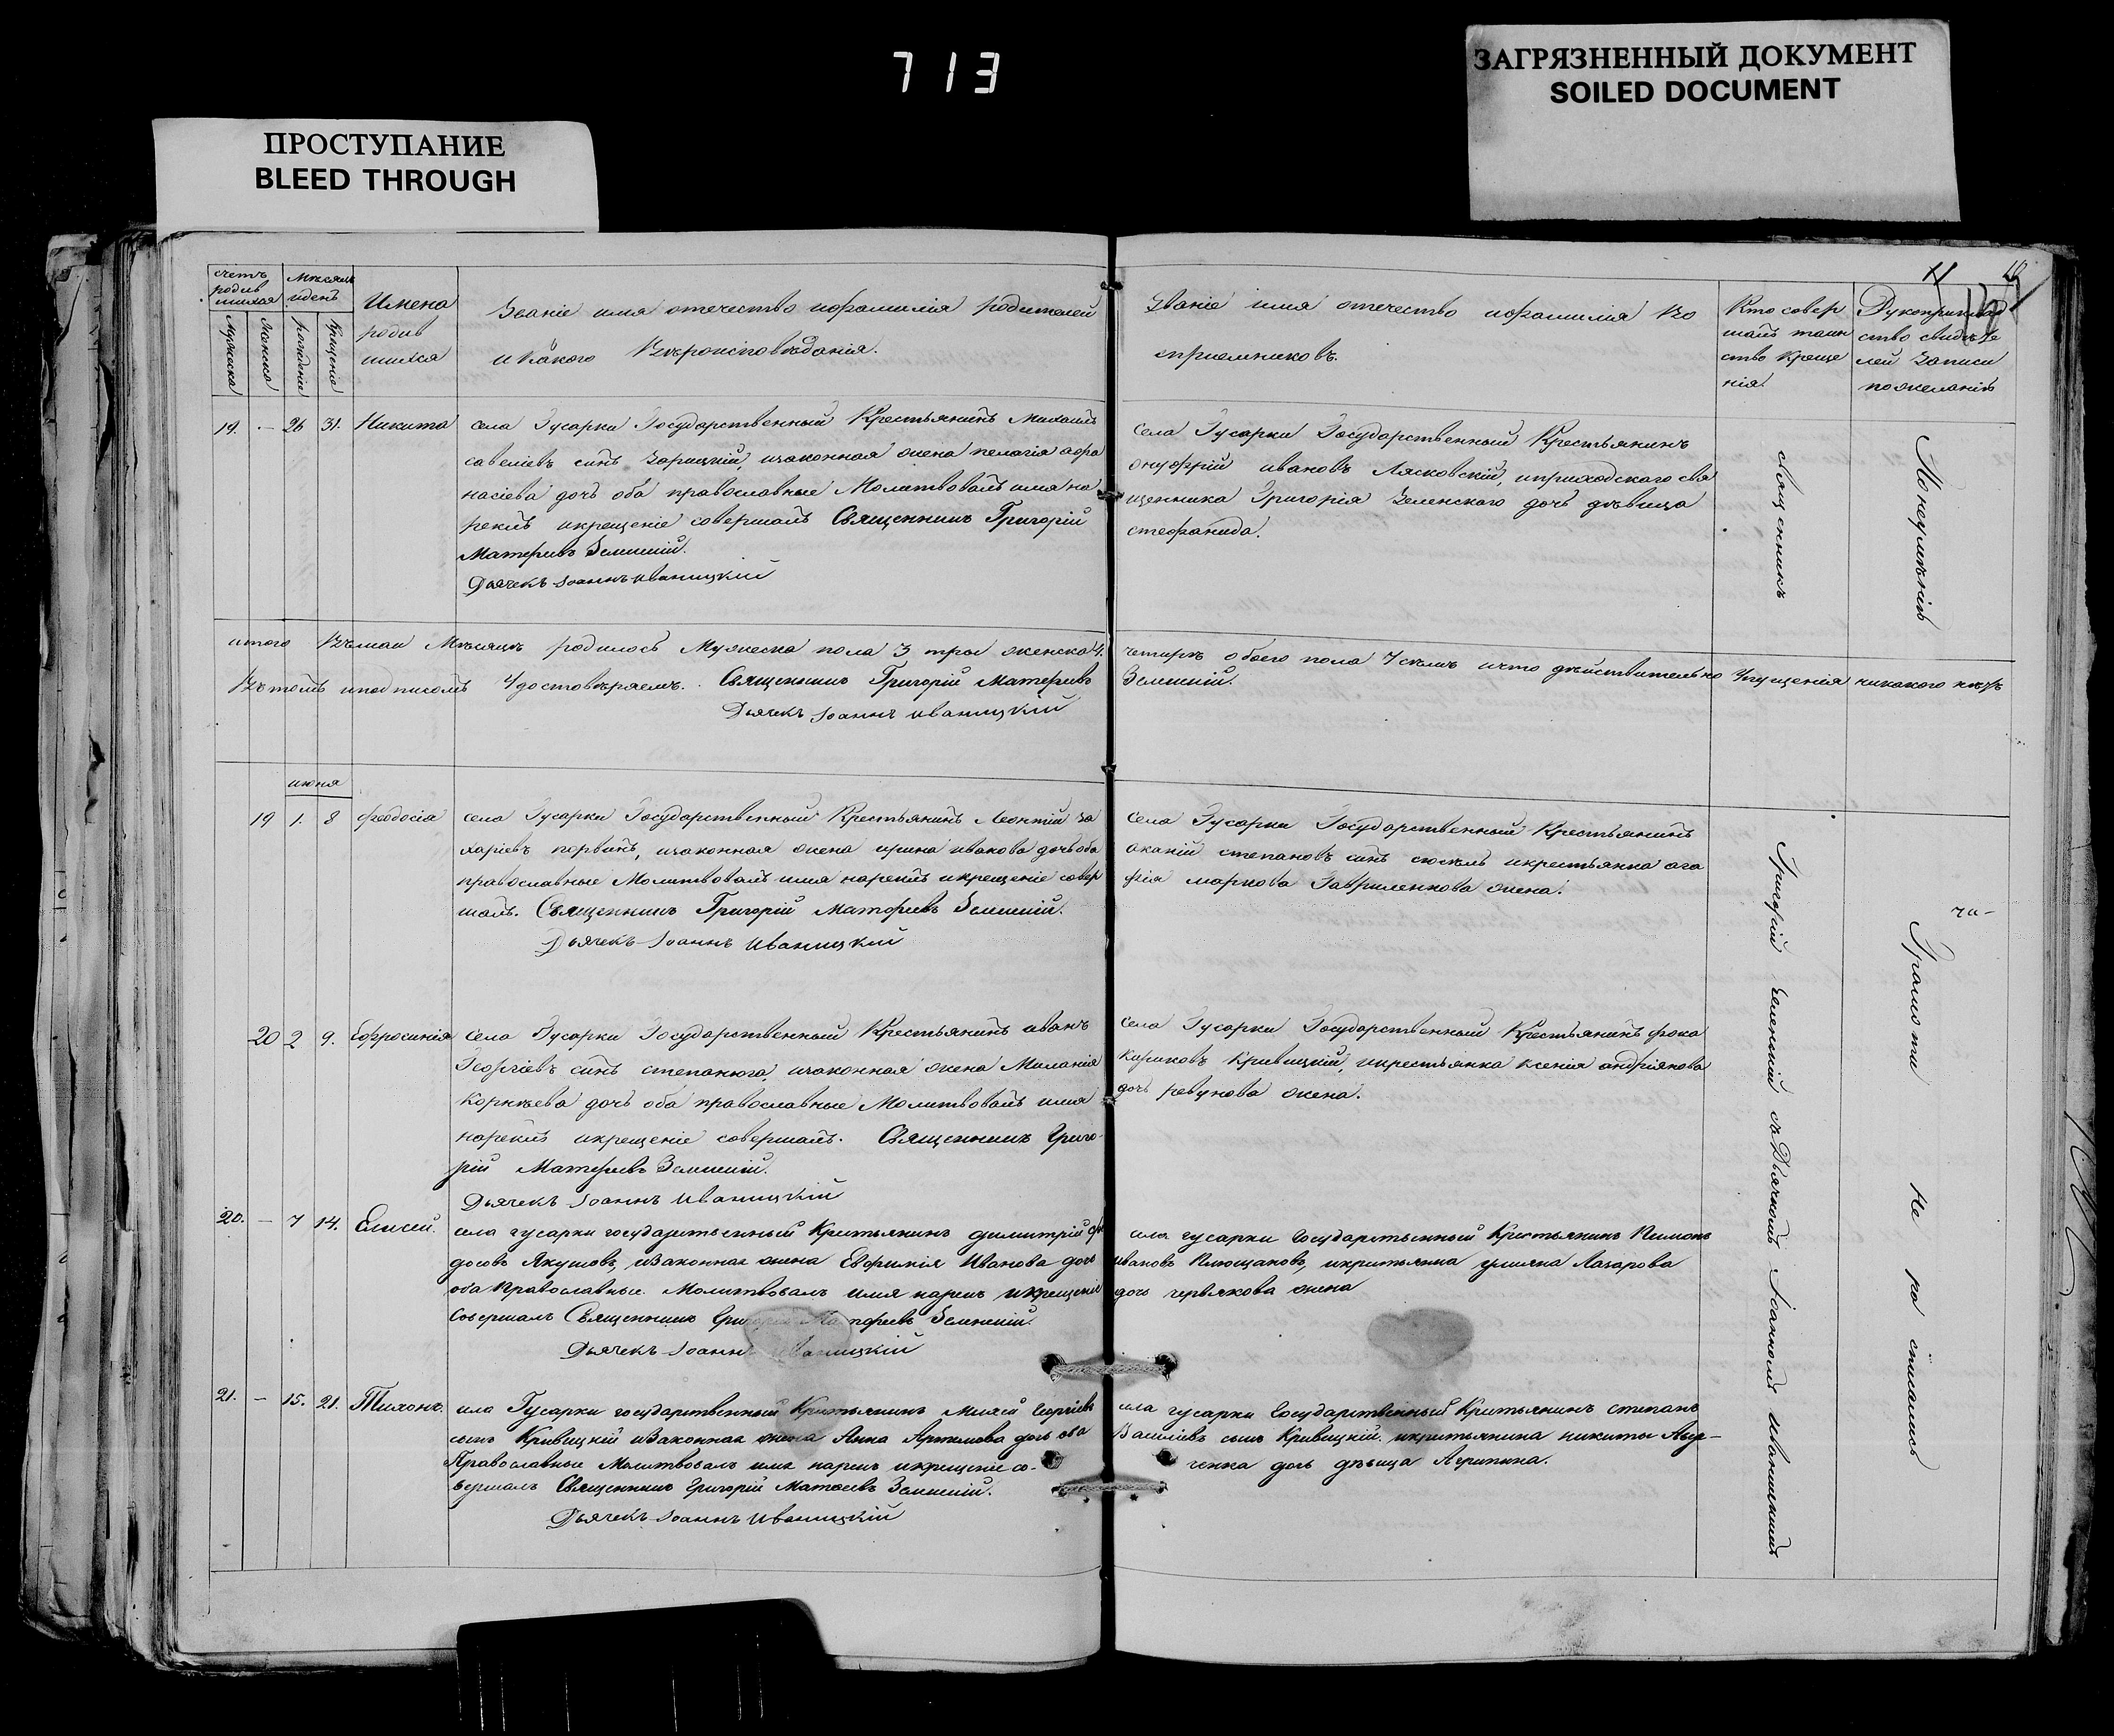 713
ЗАГРЯЗНЕННЫЙ ДОКУМЕНТ
SOILED DOCUMENT
ПРОСТУПАНИЕ
BLEED THROUGH
счетъ родив шихся
Мужеска
Женска
Мѣсяцъ идень
рожденіе
Крещеніе
Имена родив шихся
Званіе имя отечество ифамилія родителей
икакого Вѣроисповѣданія.
Званіе имя отечество ифамилія Во
сприемниковъ.
Кто совер
шалъ таин
ство Креще
нія.
ство свидѣте
лей записи
пожеланію
19. - 26 31. Никита
села Гусарки Государственный Крестьянинъ Михаилъ
савеліевъ синъ Зарицкій, изаконная жена пелагія афа
насіева дочь оба православные Молитвовалъ имя на
рекъ икрещеніе совершалъ Священникъ Григорій
Матфеевъ Зеленскій.
Дьячекъ Іоаннъ Иваницкій
села Гусарки Государственный Крестьянинъ
онуфрій ивановъ Лясковскій, иприходского свя
щенника Григорія Зеленского дочь дѣвица
стефанида.
Священникъ
Понеумѣнію
итого Вѣмаи Мѣсяцѣ родилось Мужеска пола 3 три женска 4.
четире обоего пола 7 семъ ичто дѣйствительно Упущенія никакого нѣтъ
Вътомъ иподписомъ Удостовѣряемъ. Священникъ Григорій Матфеевъ
Зеленскій.
Дьячекъ Іоаннъ Иваницкій
июня
19 1. 8 феодосія
села Гусарки Государственный Крестьянинъ Леонтій за
харіевъ порвинъ, изаконная жена ирина иванова дочь оба
православные Молитвовалъ имя нарекъ икрещеніе совер
шалъ. Священникъ Григорій Матфеевъ Зеленскій.
Дьячекъ Іоаннъ Иваницкій
села Гусарки Государственный Крестьянинъ
степановъ синъ икрестьянка ага
фія маркова Гавриленкова жена.
20 2 9. Ефросинія
села Гусарки Государственный Крестьянинъ иванъ
Георгіевъ синъ степанюга, изаконная жена Миланія
Корнѣева дочь оба православные Молитвовалъ имя
нарекъ икрещеніе совершалъ. Священникъ Григо-
рій Матфеевъ Зеленскій.
Дьячекъ Іоаннъ Иваницкій
села Гусарки Государственный Крестьянинъ фока
Кириковъ Кривицкій, икрестьянка ксенія андріянова
дочь ревунова жена.
20. - 7 14. Елисей.
села гусарки государственный Крестьянинъ димитрій фе
досовъ Якушовъ, изаконная жена Евфимія Иванова дочь
оба Православные. Молитвовалъ имя нарекъ икрещеніе
Совершалъ Священникъ Григорій Матфеевъ Зеленскій.
Дьячекъ Іоаннъ Иваницкій
села гусарки Государственный Крестьянинъ Пимонъ
ивановъ икрестьянка улияна Лазарова
дочь червякова жена
21. - 15. 21. Тихонъ.
села Гусарки государственный Крестьянинъ Георгіевъ
сынъ Кривицкій изаконная жена Анна Артемова дочь оба
Православные Молитвовалъ имя нарекъ икрещеніе со-
вершалъ Священникъ Григорій Матвеевъ Зеленскій.
Дьячекъ Іоаннъ Иваницкій
села гусарки Государственный Крестьянинъ степанъ
Василіевъ сынъ Кривицкій. икрестьянина никиты
ченка дочь дѣвица Агрипина.
Григорій Зеленскій съ Дьячкомъ Іоанномъ Иваницкимъ
Грамоти не росписались